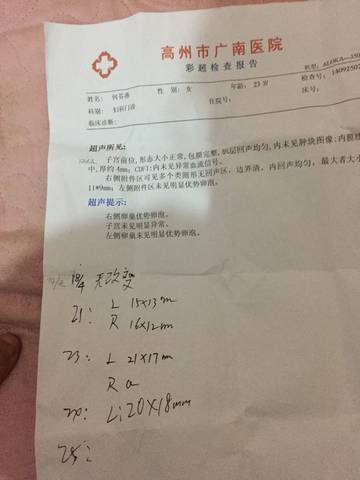 高州市广南医院
彩超检查报告
机型: ALOKA-350
姓名: 性别: 女 年龄: 23 岁 检查号: 1409250
科别: 妇科门诊 住院号: 床号:
临床诊断:
超声所见:
子宫前位, 形态大小正常, 包膜完整, 肌层回声均匀, 内未见肿块图像; 内膜线
中, 厚约 4mm; CDFI: 内未见异常血流信号。
右侧附件区可见多个类圆形无回声区, 边界清, 内回声均匀, 最大者大小
11*9mm; 左侧附件区未见明显优势卵泡。
超声提示:
右侧卵巢优势卵泡。
子宫未见明显异常。
左侧卵巢未见明显优势卵泡。
无改变
21: L 15×13 m
R 16×12 m
23: L 21×17 m
R
L: 20×18mm